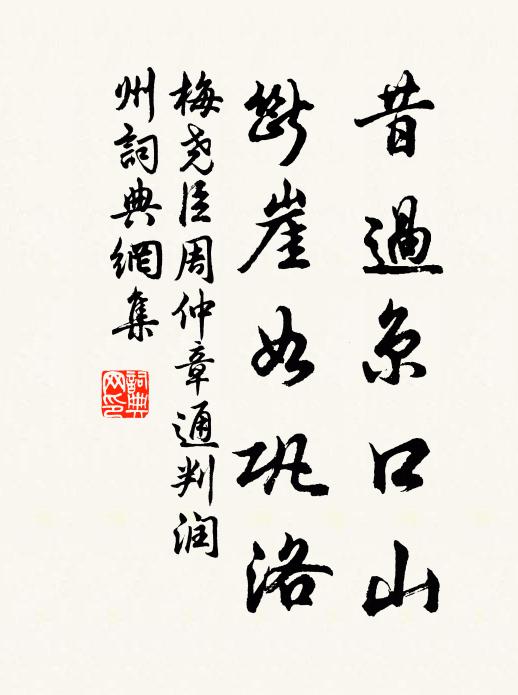 昔過京口山
斷崖如巩洛
梅尧臣周仲章通判润
州詞典網集
詞典
网印